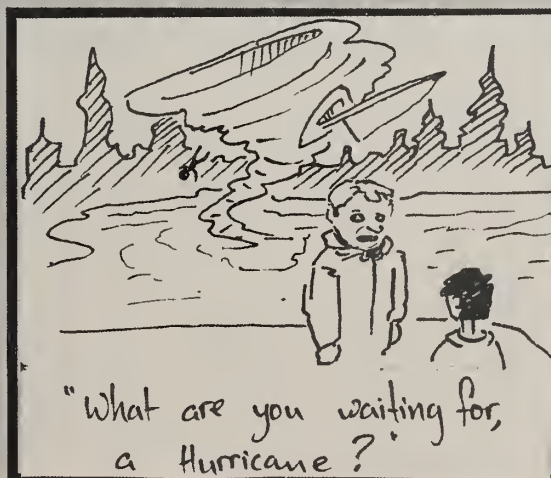 "What are you waiting for,
a Hurricane?"